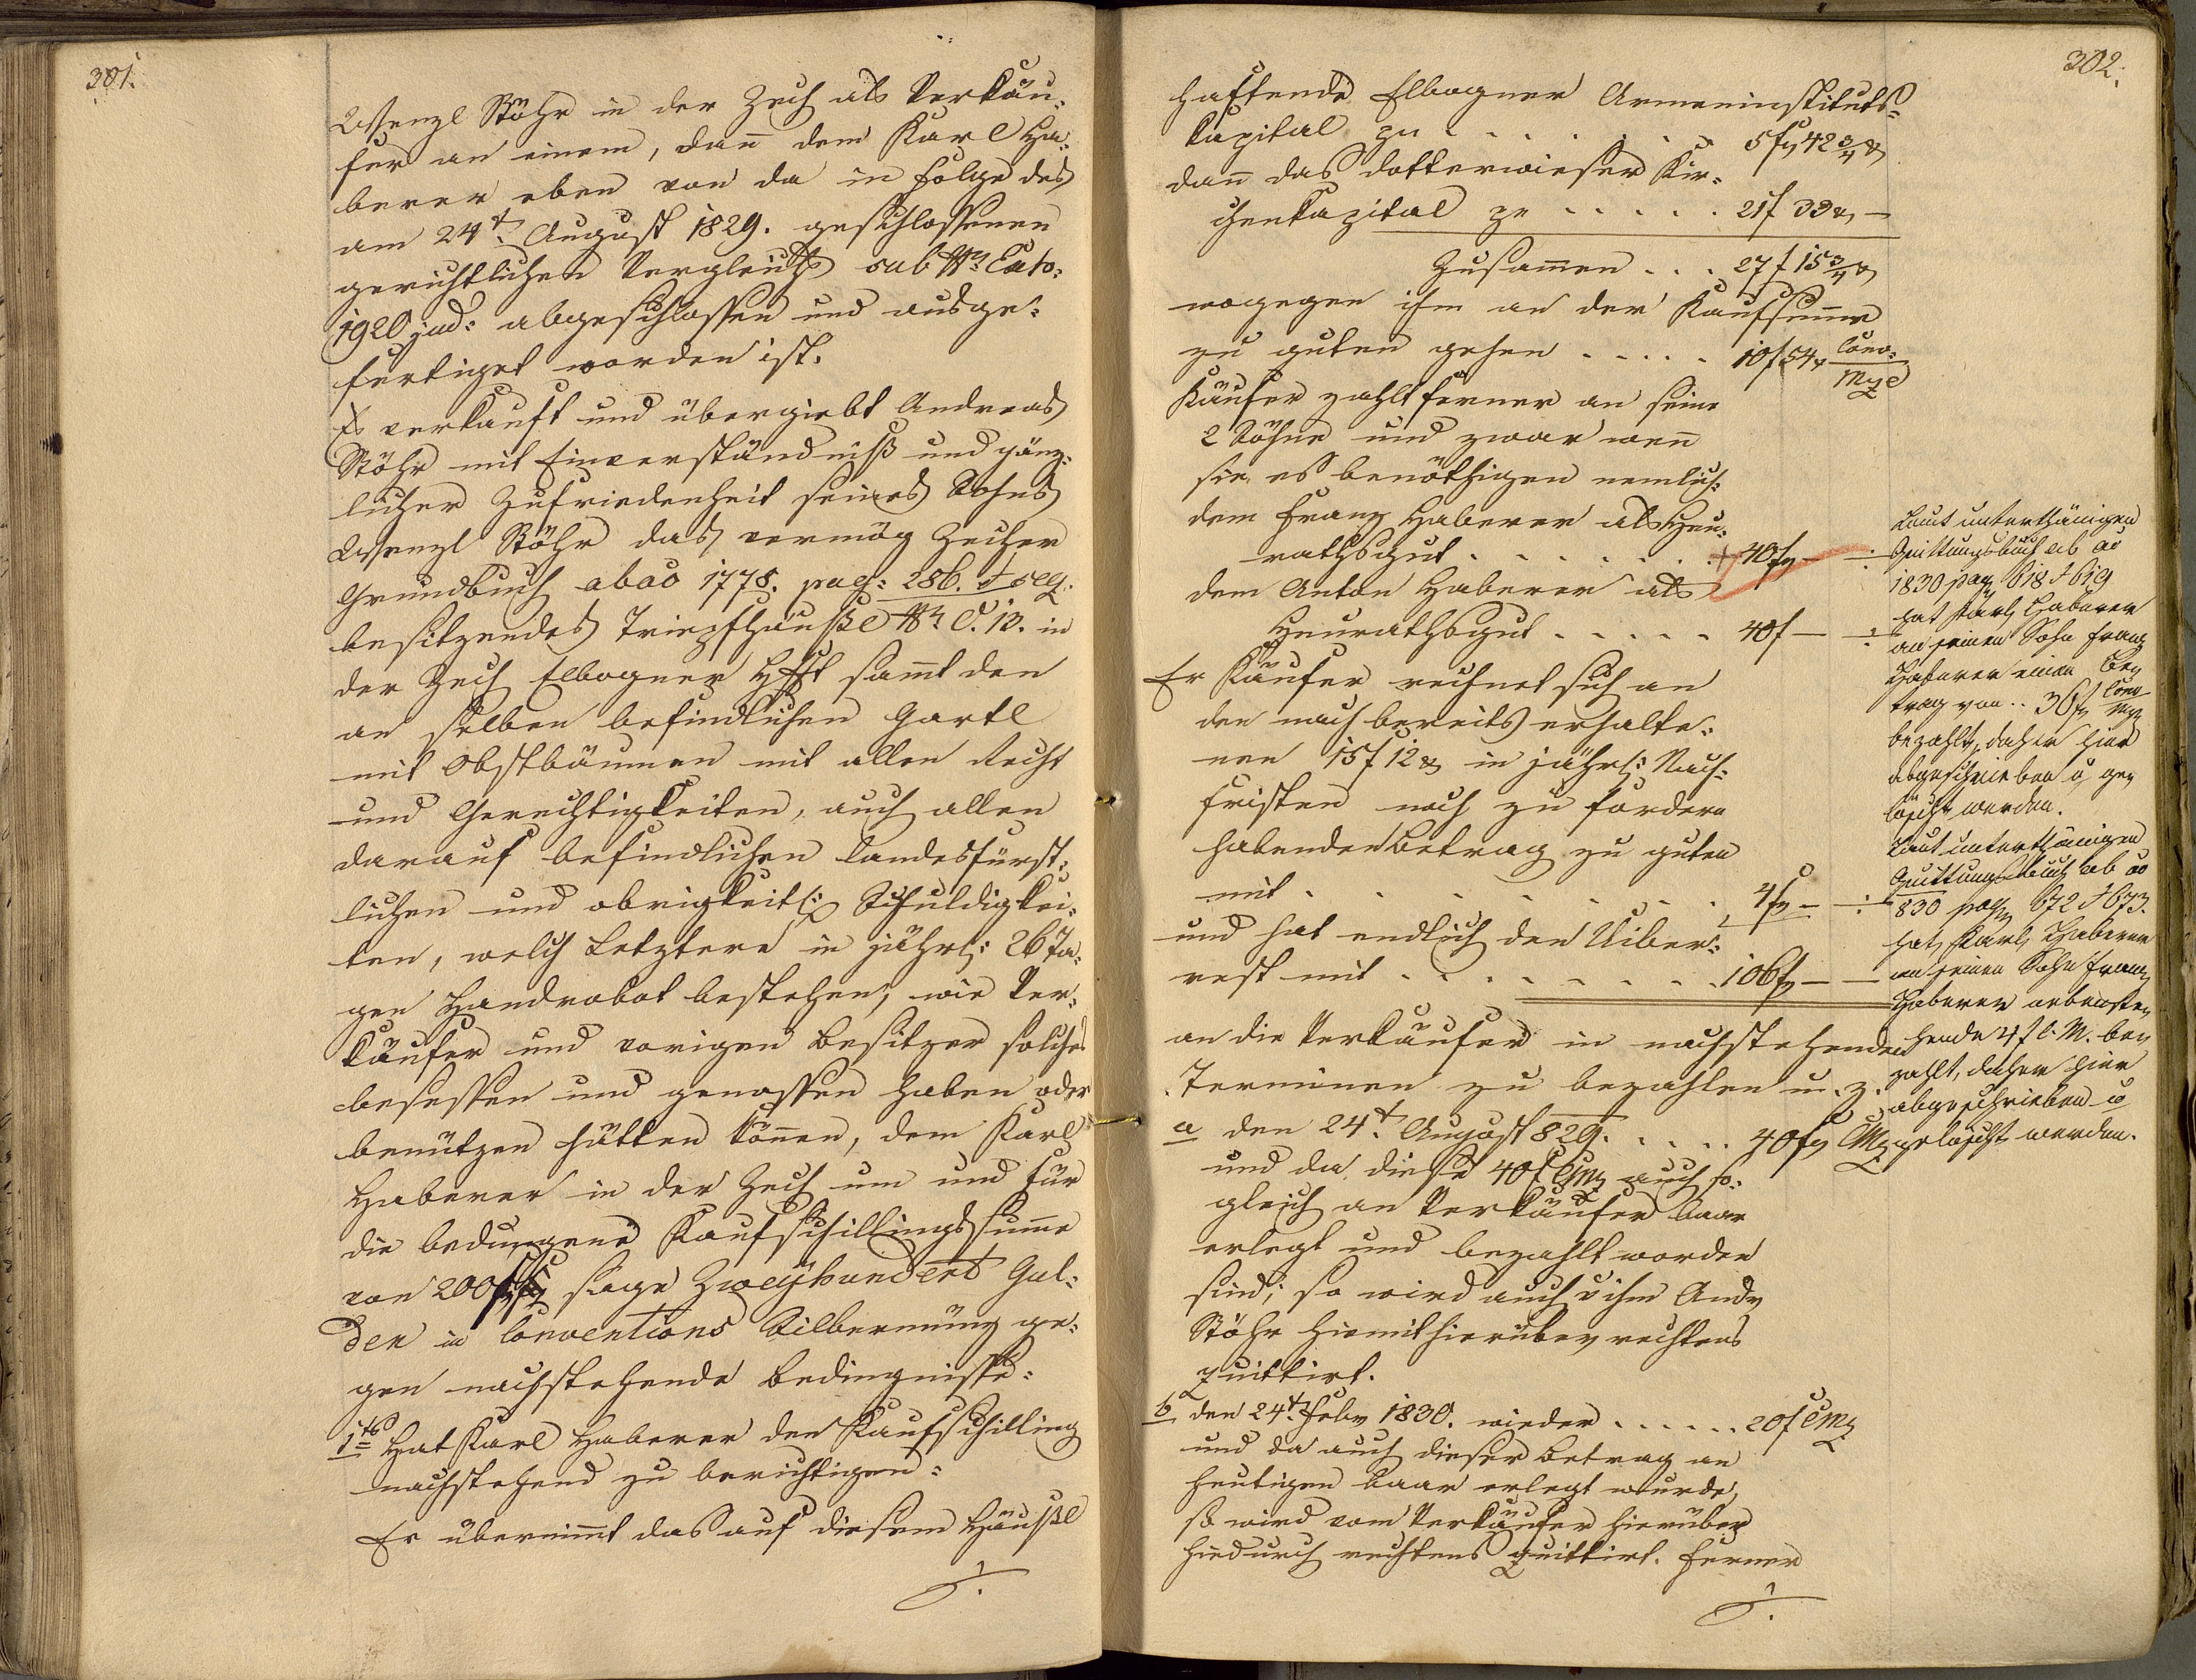 301.
Wenzl Stöhr in der Zech als Verkäu-
fer an einem, dann dem Karl Ha-
berer eben von da in Folge des
am 24t. August 1829. geschlossenen
gerichtlichen Vergleichs sub Nr. Exh:
1920 jud: abgeschlossen und ausge-
fertiget worden ist.
Es verkauft und übergiebt Andreas
Stöhr mit Einverständniß und gänz-
licher Zufriedenheit seines Sohns
Wenzl Stöhr das vermög Zecher
Grundbuch ab ao 1778. pag: 286. et seq.
besitzendes Tripfhäußl Nr. C. 13. in
der Zech Elbogner Hft sammt den
an selben befindlichen Gartl
mit Obstbäumen mit allen Recht
und Gerechtigkeiten, auch allen
darauf befindlichen landesfürst-
lichen und obrigkeitl: Schuldigkei-
ten, welch Letztere in jährl: 26 Ta-
gen Handrobot bestehen, wie Ver-
käufer und vorigen Besitzer solches
besessen und genossen haben oder
benützen hätten können, dem Karl
Haberer in der Zech um und für
die bedungene Kaufschillingssumme
von 200 f sage Zweyhundert Gul-
den in Conventions Silbermünz ge-
gen nachstehende Bedingnisse:
1tens Hat Karl Haberer den Kaufschilling
nachstehend zu berichtigen:
Er übernimmt das auf diesem Häußl
./.
302.
haftende Elbogner Armeninstituts-
kapital zu . . . . . . 5 f 42 3/4 x
dann das Dotterwieser Kir-
chenkapital zu . . . . . 21 f 33 x —
Zusammen . . . 27 f 15 3/4 x
wogegen ihm an der Kaufsumme
zu guten gehen . . . . . 10 f 54 x Conv: Mze
Käufer zahlt ferner an seine
2 Söhne und zwar wenn
sie es benöthigen nemlich:
dem Franz Haberer als Heu-
rathsgut . . . . . . . + 40 f —
dem Anton Haberer als
Heurathsgut . . . . . 40 f —
Er Käufer rechnet sich an
den nach bereits erhalte-
nen 15 f 12 x in jährl: Nach-
fristen noch zu fordern
habenden Betrag zu guten
mit . . . . . . . 4 f —
und hat endlich den Uiber-
rest mit . . . . . . . . 106 f —
an die Verkäufer in nachstehenden
Terminen zu bezahlen u. z.
a den 24t. August 829. . . . . 40 f CMz
und da diese 40 f CMz auch so-
gleich an Verkäufer baar
erlegt und bezahlt worden
sind, so wird auch v ihm Andr
Stöhr hiemit hierüber rechtens
quittirt.
b den 24t. Febr 1830. wieder . . . . . . 20 f CMz
und da auch dieser Betrag an
heutigen baar erlegt wurde,
so wird vom Verkäufer hierüber
hiedurch rechtens quittirt. Ferner
./.
Laut unterthänigen
Quittungsbuch ab ao
1830 pag 618 et 619
hat Karl Haberer
an seinen Sohn Franz
Haberer einen Be-
trag von .. 36 f Conv Mz
bezahlt, daher hier
abgeschrieben u ge-
löscht werden.
Laut unterthänigen
Quittungsbuch ab ao
830 pag 672 et 673.
hat Karl Haberer
an seinen Sohn Franz
Haberer nebenste-
hende 4 f C. M. be-
zahlt, daher hier
abgeschrieben u
gelöscht werden.